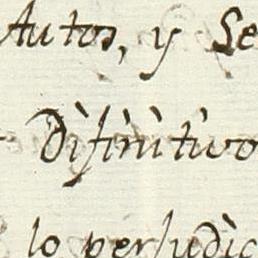 Autos, y Se
Difinitivo
lo perjudic